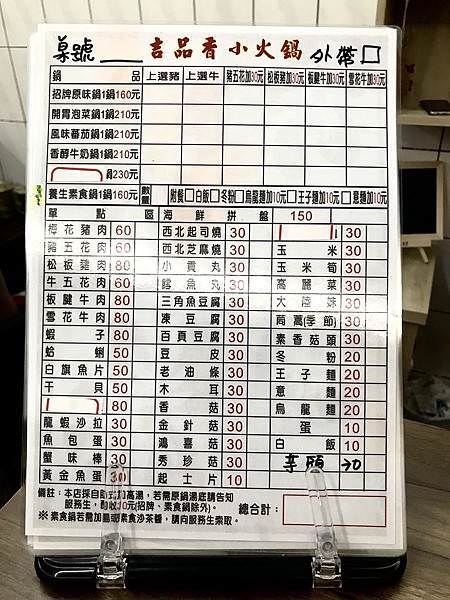 桌號 吉品香小火鍋 外帶□
鍋品 上選豬 上選牛 豬五花加30元 松板豬加30元 板腱牛加30元 雪花牛加30元
招牌原味鍋1鍋160元
開胃泡菜鍋1鍋210元
風味番茄鍋1鍋210元
香醇牛奶鍋1鍋210元
鍋230元
養生素食鍋1鍋160元 數量 附餐□白飯□冬粉□烏龍麵加10元□王子麵加10元□意麵加10元
單點區 海鮮拼盤 150
梅花豬肉 60 西北起司燒 30 30
豬五花肉 60 西北芝麻燒 30 玉米 30
松板豬肉 80 小貢丸 30 玉米筍 30
牛五花肉 60 鱈魚丸 30 高麗菜 30
板腱牛肉 80 三角魚豆腐 30 大陸妹 30
雪花牛肉 80 凍豆腐 30 茼蒿(季節) 30
蝦子 80 百頁豆腐 30 素香菇頭 30
蛤蜊 50 豆皮 30 冬粉 20
白旗魚片 50 老油條 30 王子麵 20
干貝 50 木耳 30 意麵 20
80 香菇 30 烏龍麵 20
龍蝦沙拉 30 金針菇 30 蛋 10
魚包蛋 30 鴻喜菇 30 白飯 10
蟹味棒 30 秀珍菇 30 芋頭 30
黃金魚蛋 30 起士片 10
備註：本店採自助式加高湯，若需原鍋湯底請告知
服務生，酌收30元(招牌、素食鍋除外)。
※素食鍋若需加購素食沙茶醬，請向服務生索取。
總合計：